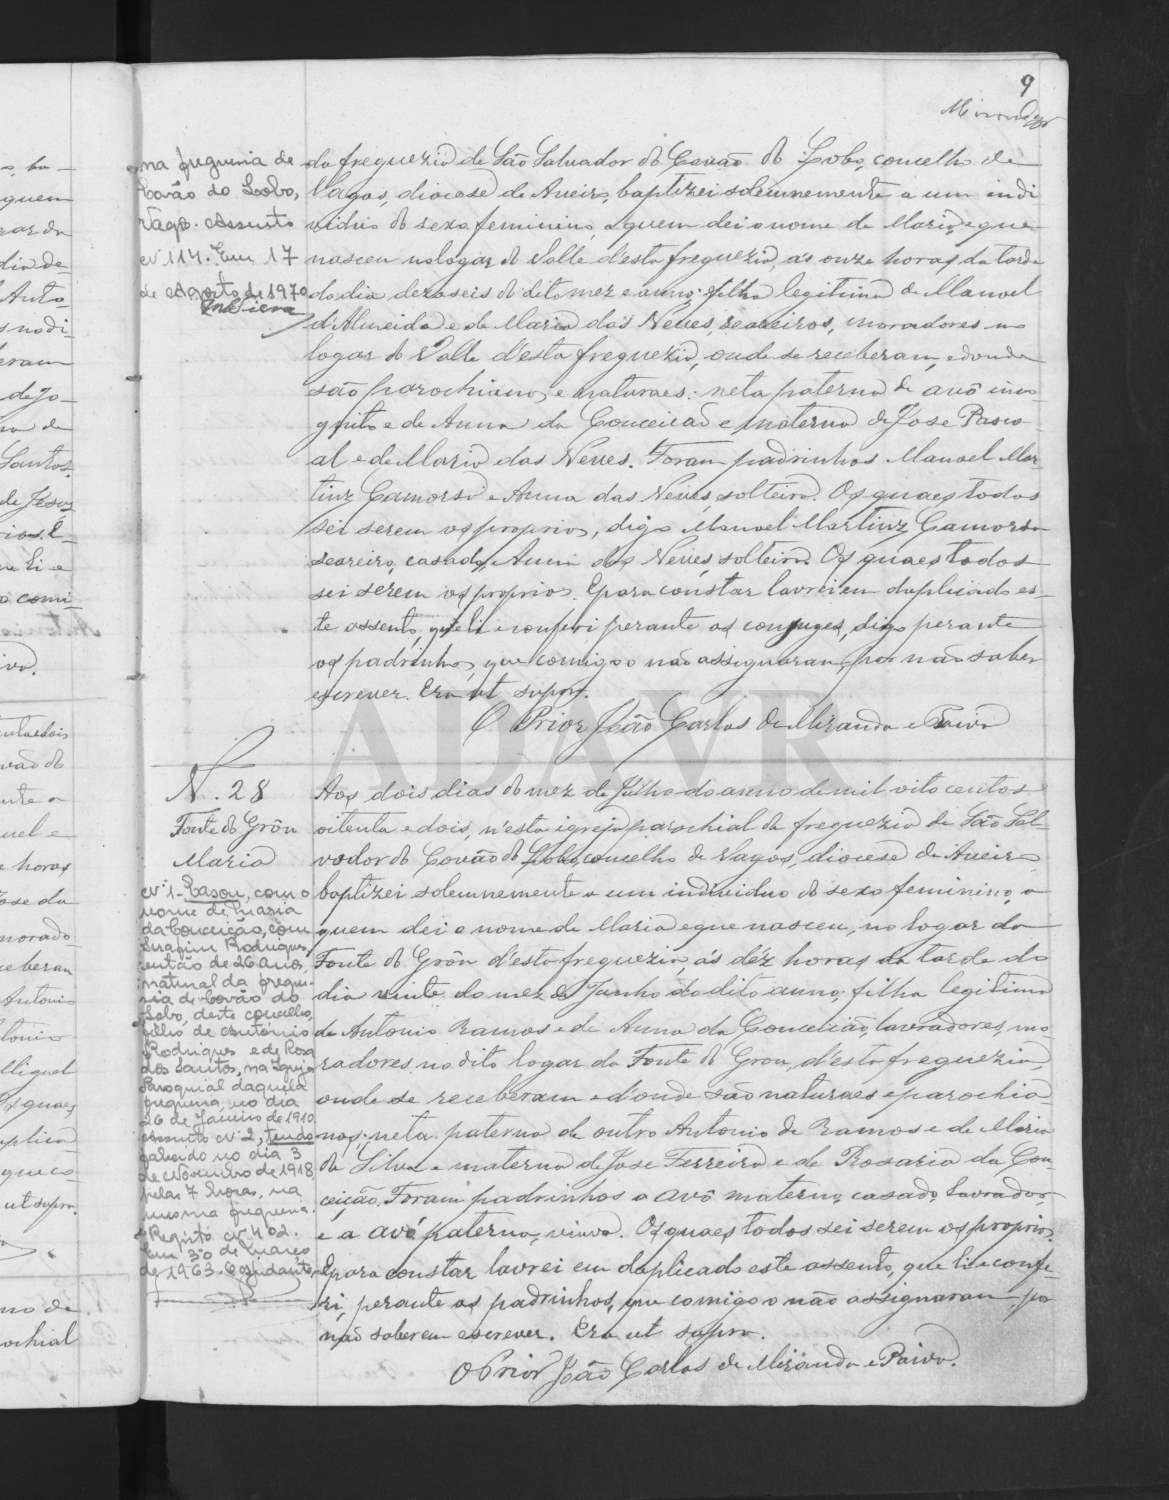 9
Miranda
na freguesia de
Covão do Lobo,
Vagos. Assento
nº 114. Em 17
de Agosto de 1970
da freguezia de São Salvador do Covão do Lobo, concelho de
Vagos, diocese de Aveiro, baptizei solemnemente a um indi
viduo do sexo feminino, a quem dei o nome de Maria, e que
nasceu no logar do Valle d'esta freguezia, ás onze horas da tarde
do dia dezaseis do dito mez e anno, filha legitima de Manoel
d'Almeida e de Maria das Neves, seareiros, moradores no
logar do Valle d'esta freguezia, onde se receberam, e donde
são parochianos, e naturaes: neta paterna de avô inco-
gnito e de Anna da Conceicão e materna de José Pasco-
al e de Maria das Neves. Foram padrinhos Manoel Mar-
tinz Camorso e Anna das Neves, solteira. Os quaes todos
sei serem os proprios, digo Manoel Martinz Camorso
seareiro, casado, Anna das Neves, solteira. Os quaes todos
sei serem os proprios. E para constar lavrei em duplicado es-
te assento, que li e conferi perante os conjuges, digo perante
os padrinhos, que comigo o não assignaram, por não saber
escrever. Era ut supra.
O Prior João Carlos de Miranda e Paiva
N. 28
Fonte do Grôu
Maria
nº 1- Casou, com o
nome de Maria
da Conceição, com
Serafim Rodrigues
então de 26 anos,
natural da fregue-
sia de Covão do
Lobo, deste concelho,
filho de António
Rodrigues e de Rosa
dos Santos, na Igreja
Paroquial daquela
freguesia, no dia
26 de Janeiro de 1910
assento nº 2, tendo
falecido no dia 3
de Novembro de 1918,
pelas 7 horas, na
mesma freguesia.
Registo nº 402.
Em 30 de Março
de 1963. O ajudante,
Aos dois dias do mez de Julho do anno de mil oito centos
oitenta e dois, n'esta igreja parochial da freguezia de São Sal-
vador do Covão do Lobo, concelho de Vagos, diocese de Aveiro
baptizei solemnemente a um individuo do sexo feminino, a
quem dei o nome de Maria e que nasceu, no logar da
Fonte do Grôu d'esta freguezia, ás déz horas da tarde do
dia vinte do mez de Junho do dito anno, filha legitima
de Antonio Ramos e de Anna da Conceição, lavradores, mo
radores no dito logar da Fonte do Grou, d'esta freguezia,
onde se receberam e donde são naturaes e parochia
nos; neta paterna de outro Antonio de Ramos e de Maria
da Silva e materna de Jose Ferreira e de Rosaria da Con-
ceição. Foram padrinhos o avô materno, casado, lavrador,
e a avó paterna, viuva. Os quaes todos sei serem os proprios.
E para constar lavrei em duplicado este assento, que li e confe-
ri, perante os padrinhos, que comigo o não assignaram por
não saberem escrever. Era ut supra.
O Prior João Carlos de Miranda e Paiva.
ADAVR